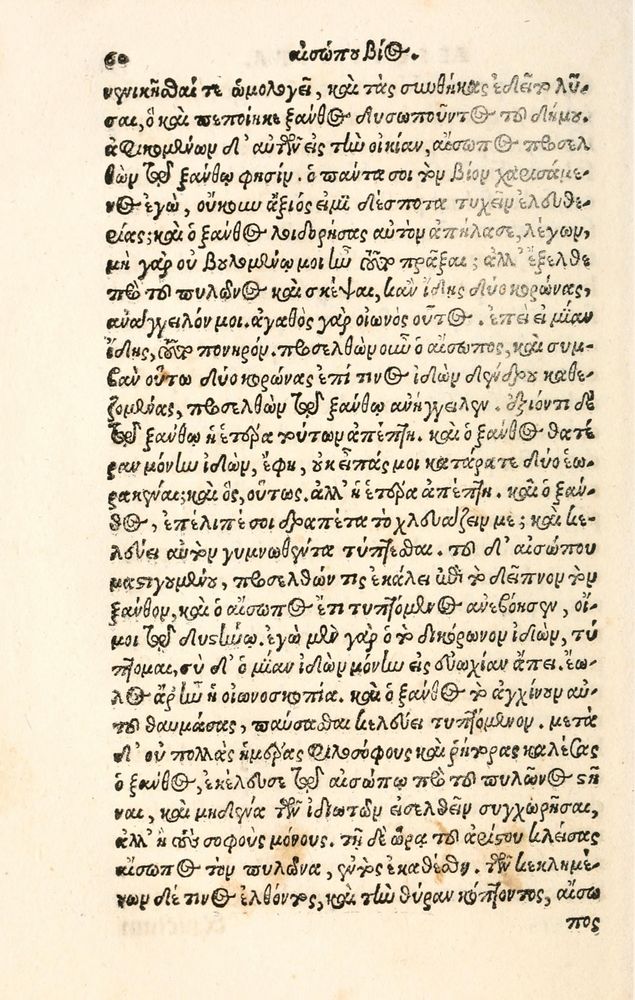 60 αἰσώπου βίος.
νενικῆσθαί τε ὡμολόγει, καὶ τὰς συνθήκας ἐδεῖτο λῦ-
σαι, ὃ καὶ πεποίηκε ξάνθος δυσωποῦντος τοῦ δήμου.
ἀφικομένων δ' αὐτῶν εἰς τὴν οἰκίαν, αἴσωπος προσελ
θὼν τῷ ξάνθῳ φησίν. ὁ πάντα σοι τὸν βίον χαρισάμε-
νος ἐγὼ, οὔκουν ἄξιός εἰμι δέσποτα τυχεῖν ἐλευθε-
ρίας; καὶ ὁ ξάνθος λοιδορήσας αὐτὸν ἀπήλασε, λέγων,
μὴ γὰρ οὐ βουλομένῳ μοι ἦν τοῦτο πρᾶξαι; ἀλλ' ἔξελθε
πρὸ τοῦ πυλῶνος καὶ σκέψαι, κἂν ἴδῃς δύο κορώνας,
ἀνάγγειλόν μοι. ἀγαθὸς γὰρ οἰωνὸς οὗτος. ἐπεὶ εἰ μίαν
ἴδῃς, τοῦτο πονηρόν. προσελθὼν οὖν ὁ αἴσωπος, καὶ συμ-
βὰν οὕτω δύο κορώνας ἐπί τινος ἰδὼν δένδρου καθε-
ζομένας, προσελθὼν τῷ ξάνθῳ ἀνήγγειλεν. ἐξιόντι δὲ
τῷ ξάνθῳ ἡ ἑτέρα τούτων ἀπέπτη. καὶ ὁ ξάνθος θατέ
ραν μόνην ἰδὼν, ἔφη, οὐκ εἶπάς μοι κατάρατε δύο ἑω-
ρακέναι; καὶ ὃς, οὕτως. ἀλλ' ἡ ἑτέρα ἀπέπτη. καὶ ὁ ξάν-
θος, ἐπέλιπέ σοι δραπέτα τὸ χλευάζειν με; καὶ κε-
λεύει αὐτὸν γυμνωθέντα τύπτεσθαι. τοῦ δ' αἰσώπου
μαστιγουμένου, προσελθών τις ἐκάλει ἐπὶ τὸ δεῖπνον τὸν
ξάνθον, καὶ ὁ αἴσωπος ἔτι τυπτόμενος ἀνεβόησεν, οἴ-
μοι τῷ δυστήνῳ. ἐγὼ μὲν γὰρ ὁ τὸ δικόρωνον ἰδὼν, τύ
πτομαι, σὺ δ' ὁ μίαν ἰδὼν μόνην εἰς εὐωχίαν ἄπει. ἕω-
λος ἄρ' ἦν ἡ οἰωνοσκοπία. καὶ ὁ ξάνθος τὸ ἀγχίνουν αὐ-
τοῦ θαυμάσας, παύσασθαι κελεύει τυπτόμενον. μετὰ
δ' οὐ πολλὰς ἡμέρας φιλοσόφους καὶ ῥήτορας καλέσας
ὁ ξάνθος, ἐκέλευσε τῷ αἰσώπῳ πρὸ τοῦ πυλῶνος στῆ
ναι, καὶ μηδένα τῶν ἰδιωτῶν εἰσελθεῖν συγχωρῆσαι,
ἀλλ' ἢ τοὺς σοφοὺς μόνους. τῇ δὲ ὥρᾳ τοῦ ἀρίστου κλείσας
αἴσωπος τὸν πυλῶνα, ἐντὸς ἐκαθέσθη. τῶν κεκλημέ-
νων δέ τινος ἐλθόντος, καὶ τὴν θύραν κόπτοντος, αἴσω
πος